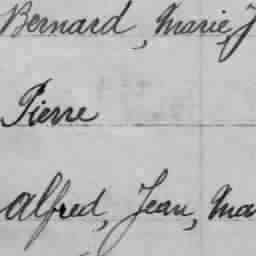 Bernard, Marie J
Pierre
Alfred, Jean, Ma